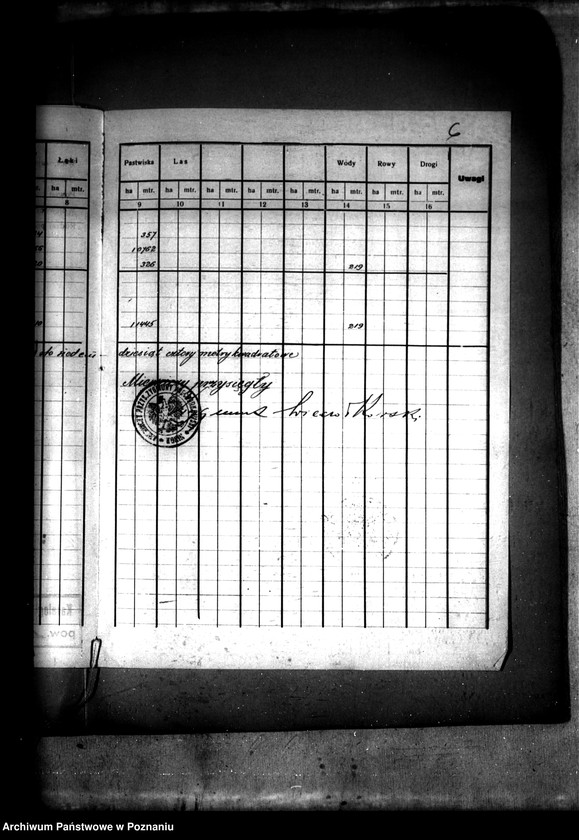 6
Łąki Pastwiska Las Wody Rowy Drogi Uwagi
mtr. ha mtr. ha mtr. ha mtr. ha mtr. ha mtr. ha mtr. ha mtr. ha mtr. ha mtr.
8 9 10 11 12 13 14 15 16
357
10762
326 219
11445 219
sto siedem dziesiąt cztery metry kwadratowe
Mierniczy przysięgły
pow.
Archiwum Państwowe w Poznaniu